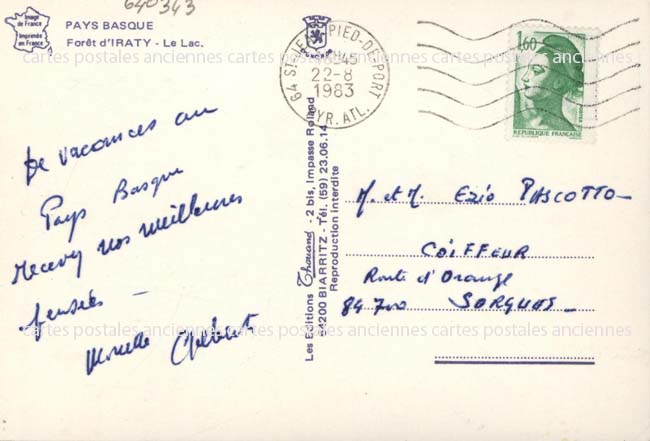 640343
Image
de France
Imprimée
en France
PAYS BASQUE
Forêt d'IRATY - Le Lac.
64 ST JEAN PIED-DE-PORT
16H45
22-8
1983
PYR. ATL.
1,60
REPUBLIQUE FRANÇAISE
cartes postales anciennes cartes postales anciennes cartes postales anciennes
De vacances au
Pays Basque
recevez nos meilleures
pensées -
Gilbert
Les Editions Thouand - 2 bis, Impasse Roland
64200 BIARRITZ - Tél. (59) 23.06.14
Reproduction interdite
M. et M. Ezio PASCOTTO
COIFFEUR
Route d'Orange
84700 SORGUES
cartes postales anciennes cartes postales anciennes cartes postales anciennes